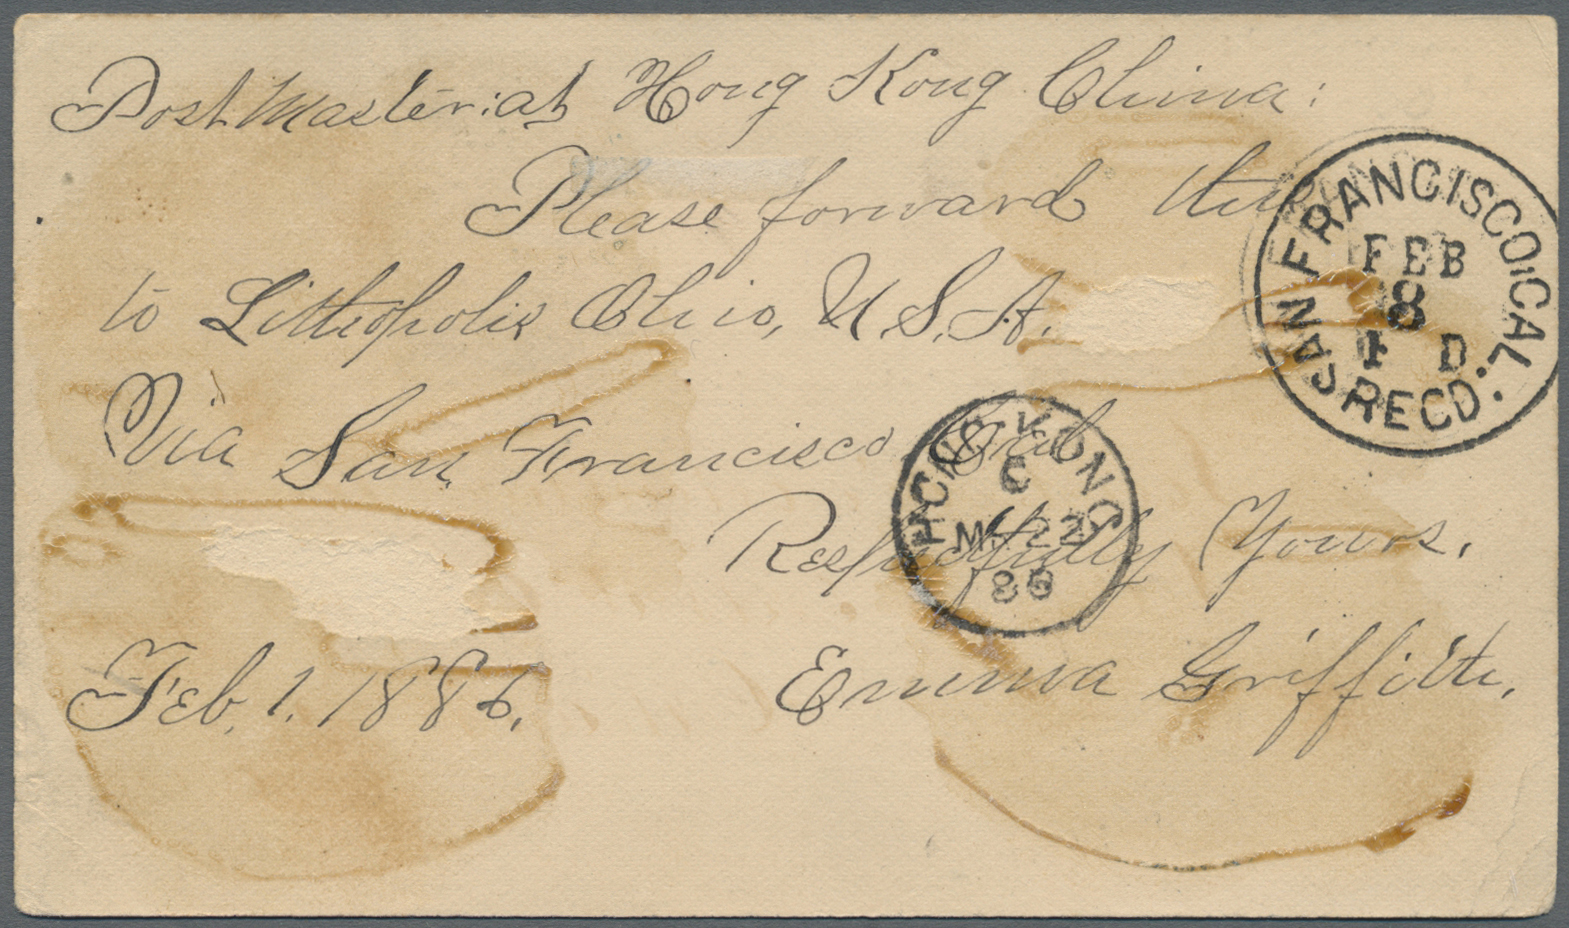 Post Master: at Hong Kong China:
Please forward this
to Lithopolis Ohio, U.S.A.
Via San Francisco Cal
Respectfully Yours.
Feb. 1. 1886. Emma Griffith.
SAN FRANCISCO. CAL.
FEB
8
4 D.
RECD.
HONG KONG
C
22
86